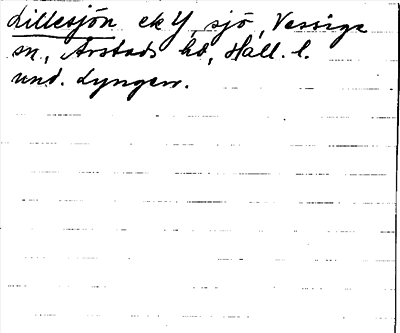 Lillesjön ek Y, sjö, Vessige
sn., Årstads hd, Hall. l.
und. Lyngen.